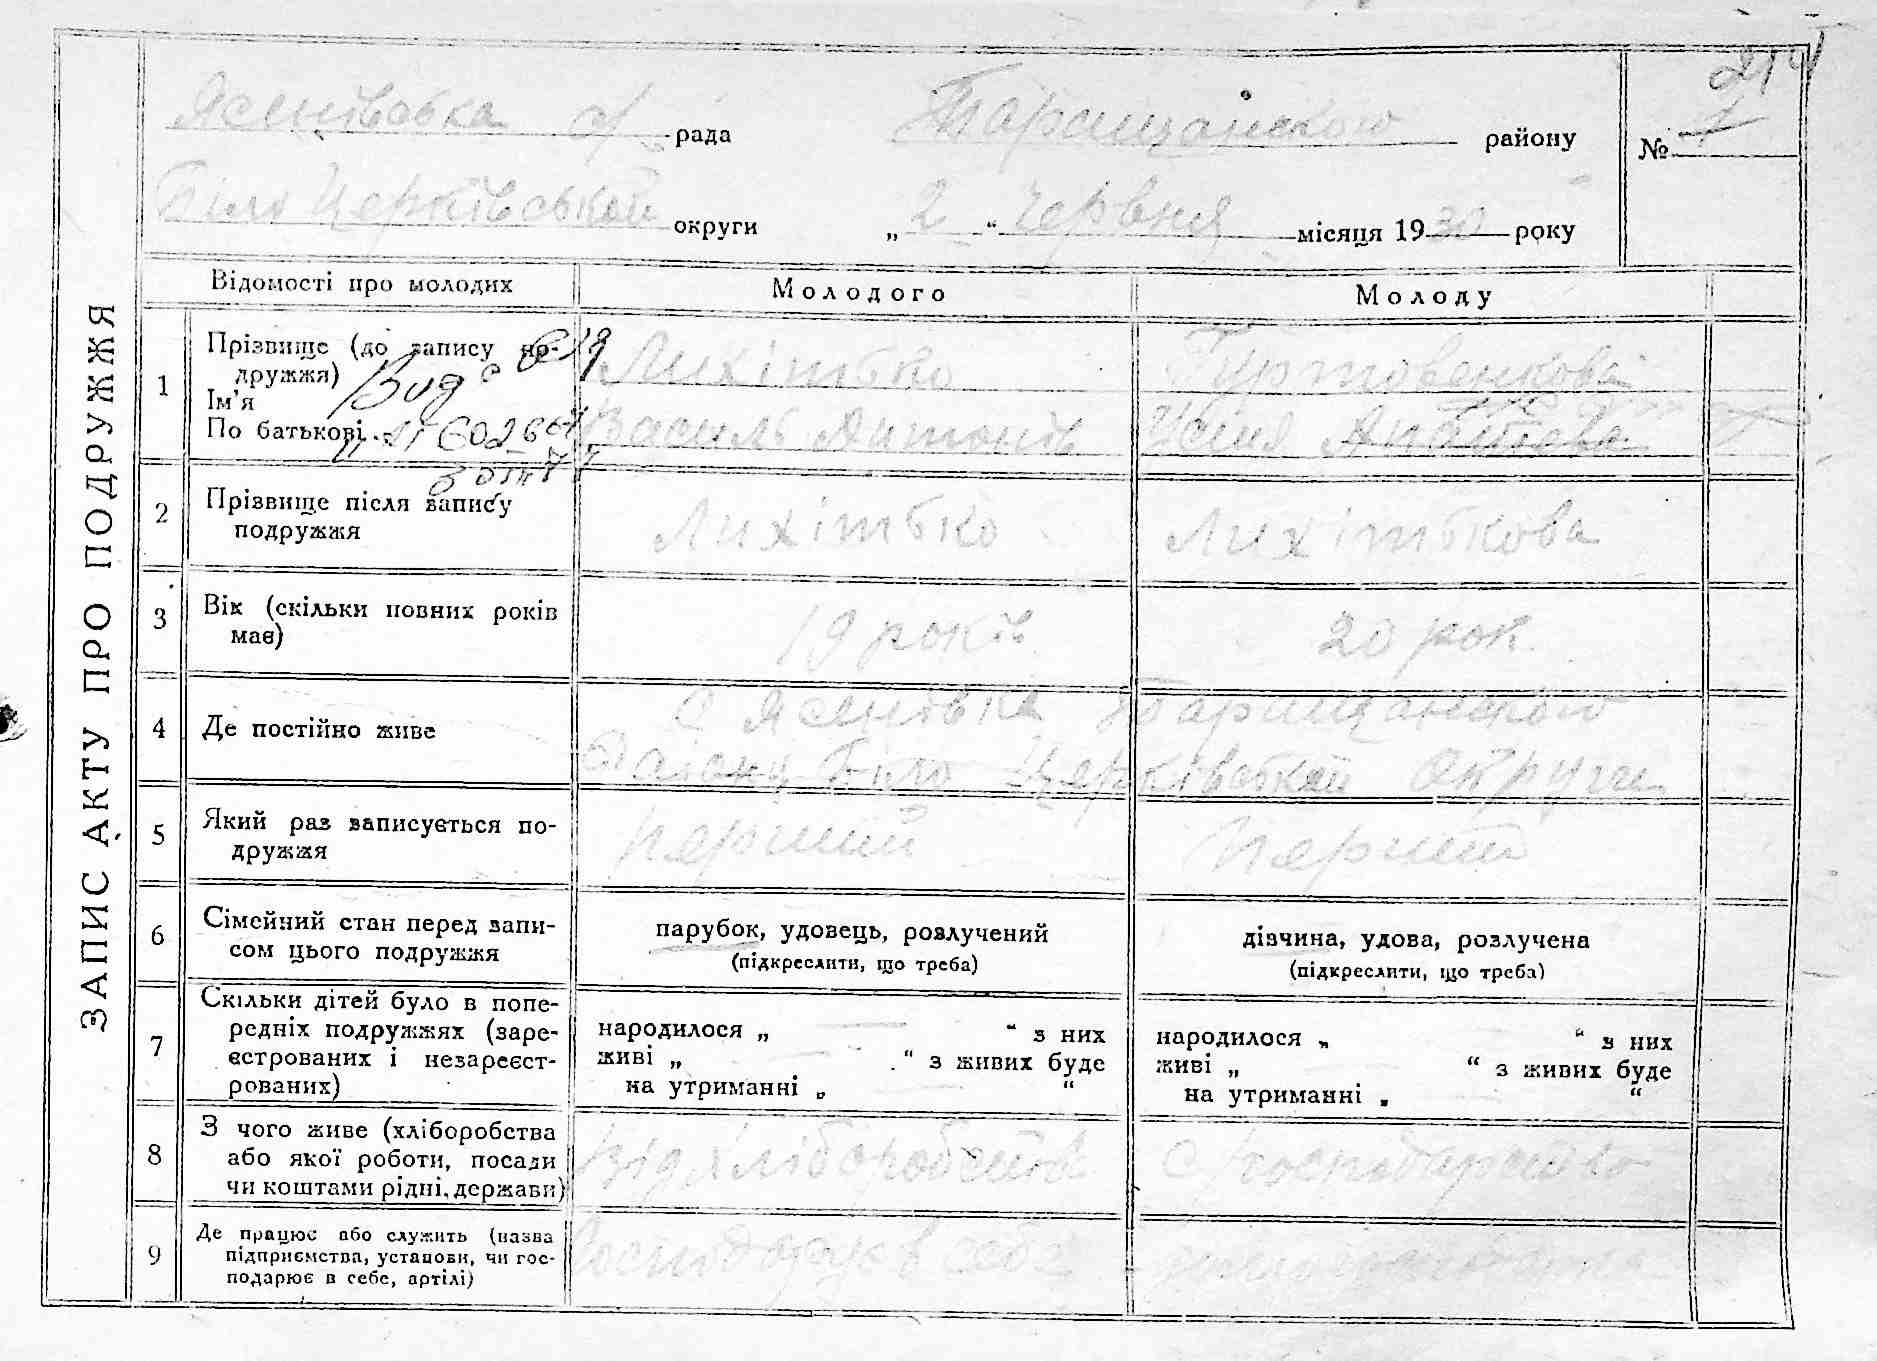 214
Ясенівська с/ рада Таращанского району № 7
Біло Церківськой округи „ 2 “ червня місяця 1930 року
ЗАПИС АКТУ ПРО ПОДРУЖЖЯ
Відомості про молодих Молодого Молоду
1 Прізвище (до запису по-
дружжя)
Ім'я
По батькові
Лихітько
Василь Антонів
2 Прізвище після запису
подружжя
Лихітько Лихітькова
3 Вік (скільки повних років
має)
19 років 20 рок
4 Де постійно живе
С Ясенівка Таращанского
Району Біло Церківськой округи
5 Який раз записується по-
дружжя
Перший Перший
6 Сімейний стан перед запи-
сом цього подружжя
парубок, удовець, розлучений
(підкреслити, що треба)
дівчина, удова, розлучена
(підкреслити, що треба)
7 Скільки дітей було в попе-
редніх подружжях (заре-
єстрованих і незареєст-
рованих)
народилося „ — “ з них
живі „ — “ з живих буде
на утриманні „ “
народилося „ “ з них
живі „ “ з живих буде
на утриманні „ “
8 З чого живе (хліборобства
або якої роботи, посади
чи коштами рідні, держави)
Від хліборобства С господарство
9 Де працює або служить (назва
підприємства, установи, чи гос-
подарює в себе, артілі)
Господарує в себе